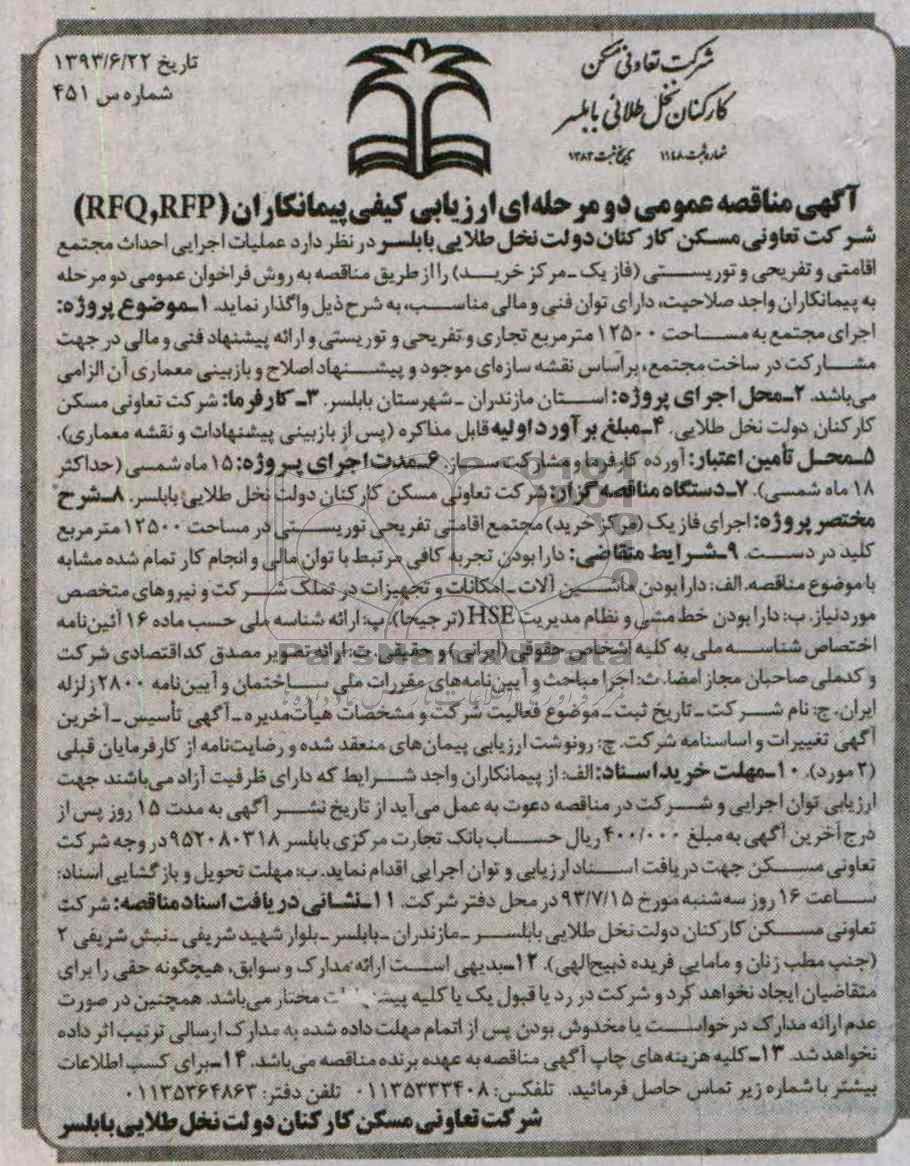 شرکت تعاونی مسکن
کارکنان نخل طلائی بابلسر
شماره ثبت ۱۱۴۸ تاریخ ثبت ۱۳۸۳
تاریخ ۱۳۹۳/۶/۲۲
شماره س ۴۵۱
آگهی مناقصه عمومی دو مرحله‌ای ارزیابی کیفی پیمانکاران (RFQ,RFP)
شرکت تعاونی مسکن کارکنان دولت نخل طلایی بابلسر در نظر دارد عملیات اجرایی احداث مجتمع
اقامتی و تفریحی و توریستی (فاز یک ـ مرکز خرید) را از طریق مناقصه به روش فراخوان عمومی دو مرحله
به پیمانکاران واجد صلاحیت، دارای توان فنی و مالی مناسب، به شرح ذیل واگذار نماید. ۱ـ موضوع پروژه:
اجرای مجتمع به مساحت ۱۲۵۰۰ مترمربع تجاری و تفریحی و توریستی و ارائه پیشنهاد فنی و مالی در جهت
مشارکت در ساخت مجتمع، براساس نقشه سازه‌ای موجود و پیشنهاد اصلاح و بازبینی معماری آن الزامی
می‌باشد. ۲ـ محل اجرای پروژه: استان مازندران ـ شهرستان بابلسر. ۳ـ کارفرما: شرکت تعاونی مسکن
کارکنان دولت نخل طلایی. ۴ـ مبلغ برآورد اولیه قابل مذاکره (پس از بازبینی پیشنهادات و نقشه معماری).
۵ـ محل تأمین اعتبار: آورده کارفرما و مشارکت ساز. ۶ـ مدت اجرای پروژه: ۱۵ ماه شمسی (حداکثر
۱۸ ماه شمسی). ۷ـ دستگاه مناقصه گزار: شرکت تعاونی مسکن کارکنان دولت نخل طلایی بابلسر. ۸ـ شرح
مختصر پروژه: اجرای فاز یک (مرکز خرید) مجتمع اقامتی تفریحی توریستی در مساحت ۱۲۵۰۰ مترمربع
کلید در دست. ۹ـ شرایط متقاضی: دارا بودن تجربه کافی مرتبط با توان مالی و انجام کار تمام شده مشابه
با موضوع مناقصه. الف: دارا بودن ماشین آلات ـ امکانات و تجهیزات در تملک شرکت و نیروهای متخصص
مورد نیاز. ب: دارا بودن خط مشی و نظام مدیریت HSE (ترجیحا). پ: ارائه شناسه ملی حسب ماده ۱۶ آئین‌نامه
اختصاص شناسه ملی به کلیه اشخاص حقوقی (ایرانی) و حقیقی. ت: ارائه تصویر مصدق کد اقتصادی شرکت
و کدملی صاحبان مجاز امضا. ث: اجرا مباحث و آیین‌نامه‌های مقررات ملی ساختمان و آیین‌نامه ۲۸۰۰ زلزله
ایران. ج: نام شرکت ـ تاریخ ثبت ـ موضوع فعالیت شرکت و مشخصات هیأت‌مدیره ـ آگهی تأسیس ـ آخرین
آگهی تغییرات و اساسنامه شرکت. چ: رونوشت ارزیابی پیمان‌های منعقد شده و رضایت‌نامه از کارفرمایان قبلی
(۳ مورد). ۱۰ـ مهلت خرید اسناد: الف: از پیمانکاران واجد شرایط که دارای ظرفیت آزاد می‌باشند جهت
ارزیابی توان اجرایی و شرکت در مناقصه دعوت به عمل می‌آید از تاریخ نشر آگهی به مدت ۱۵ روز پس از
درج آخرین آگهی به مبلغ ۴۰۰/۰۰۰ ریال حساب بانک تجارت مرکزی بابلسر ۹۵۲۰۸۰۳۱۸ در وجه شرکت
تعاونی مسکن جهت دریافت اسناد ارزیابی و توان اجرایی اقدام نماید. ب: مهلت تحویل و بازگشایی اسناد:
ساعت ۱۶ روز سه‌شنبه مورخ ۹۳/۷/۱۵ در محل دفتر شرکت. ۱۱ـ نشانی دریافت اسناد مناقصه: شرکت
تعاونی مسکن کارکنان دولت نخل طلایی بابلسر ـ مازندران ـ بابلسر ـ بلوار شهید شریفی ـ نبش شریفی ۲
(جنب مطب زنان و مامایی فریده ذبیح‌الهی). ۱۲ـ بدیهی است ارائه مدارک و سوابق، هیچگونه حقی را برای
متقاضیان ایجاد نخواهد کرد و شرکت در رد یا قبول یک یا کلیه مختار می‌باشد. همچنین در صورت
عدم ارائه مدارک درخواست یا مخدوش بودن پس از اتمام مهلت داده شده به مدارک ارسالی ترتیب اثر داده
نخواهد شد. ۱۳ـ کلیه هزینه‌های چاپ آگهی مناقصه به عهده برنده مناقصه می‌باشد. ۱۴ـ برای کسب اطلاعات
بیشتر با شماره زیر تماس حاصل فرمائید. تلفکس: ۰۱۱۳۵۳۳۳۴۰۸ تلفن دفتر: ۰۱۱۳۵۳۶۴۸۶۳
شرکت تعاونی مسکن کارکنان دولت نخل طلایی بابلسر
ParsNamadData